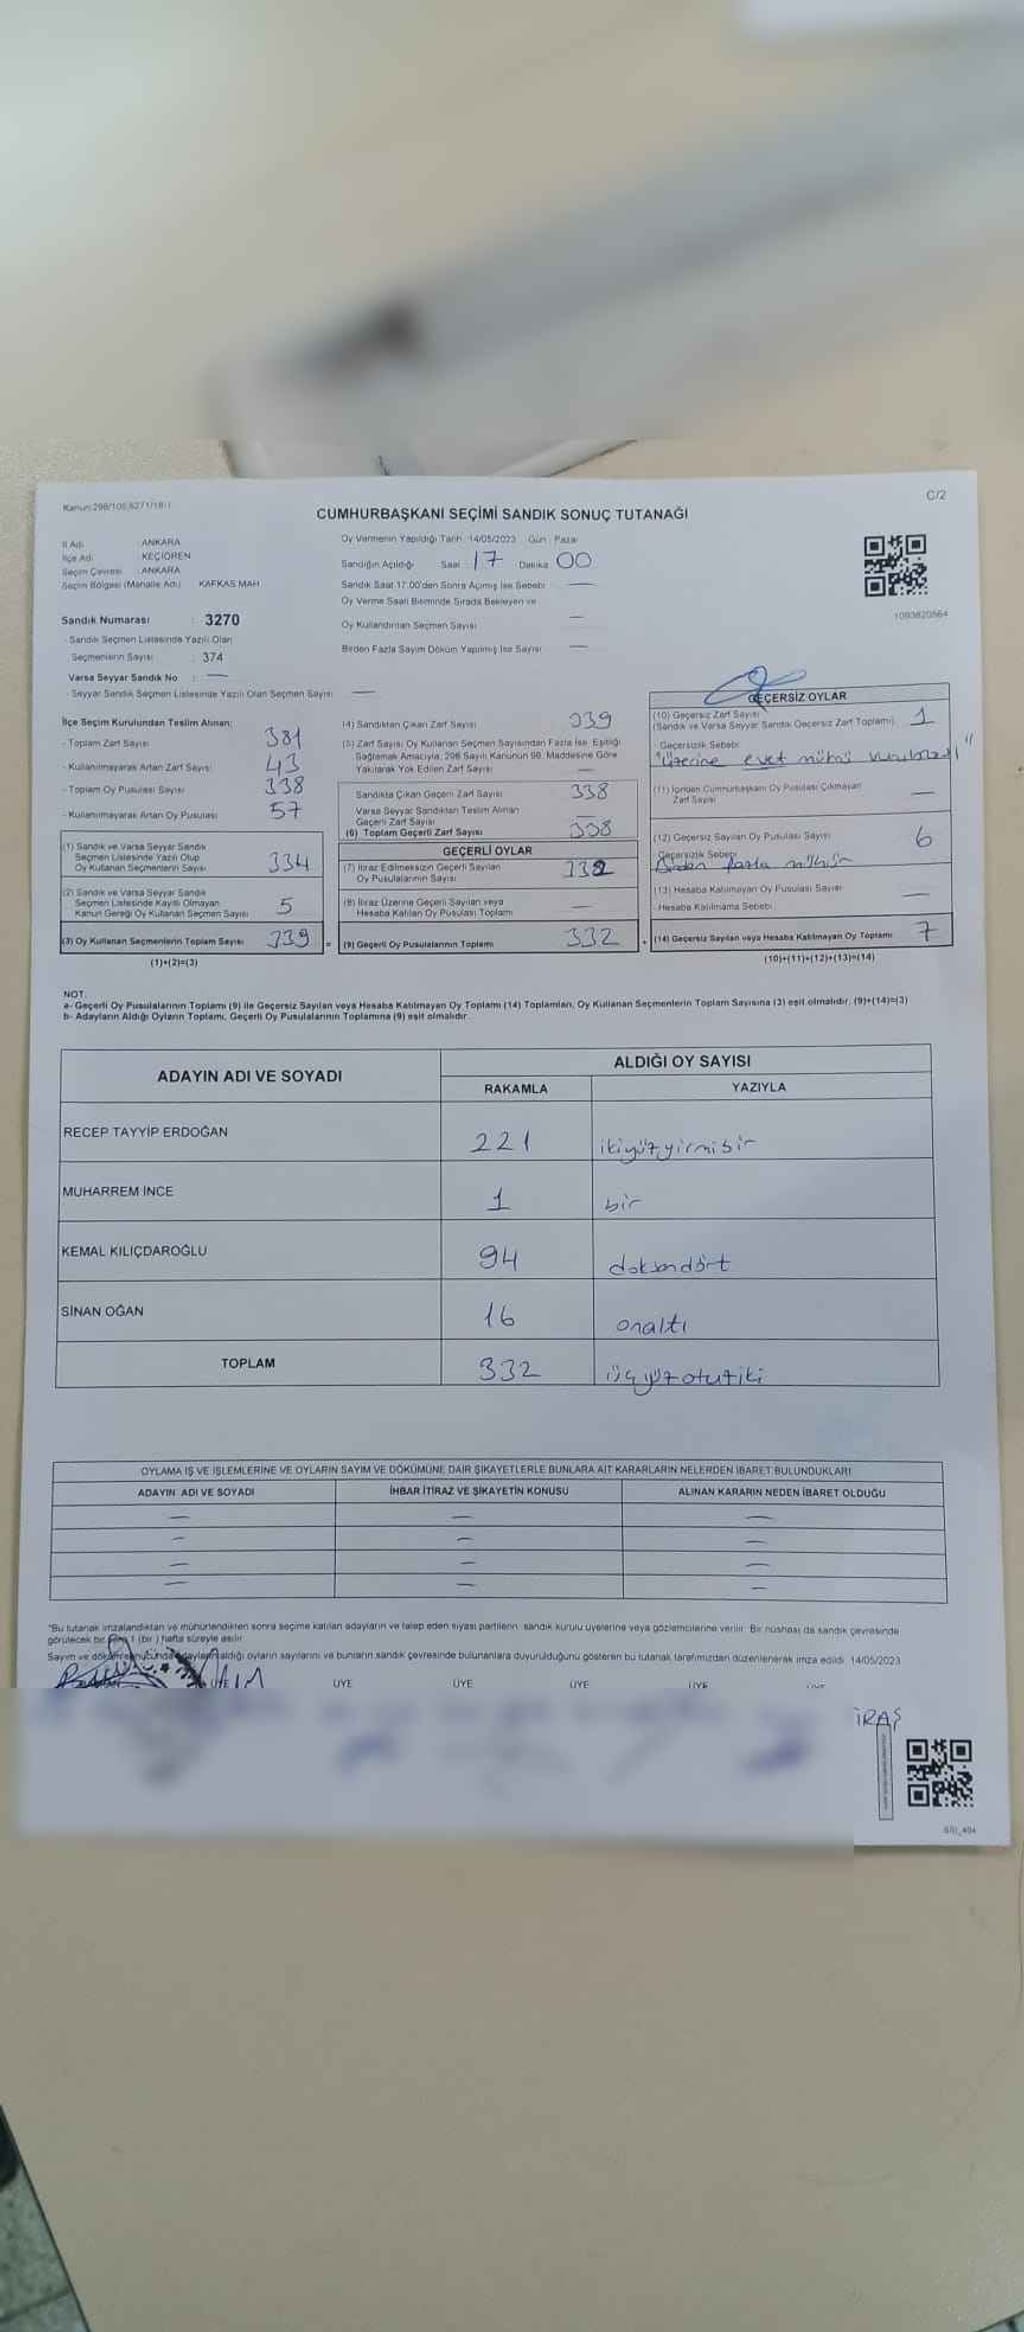 Kanun:298/105,6271/18/1
C/2
CUMHURBAŞKANI SEÇİMİ SANDIK SONUÇ TUTANAĞI
İl Adı : ANKARA
İlçe Adı : KEÇİÖREN
Seçim Çevresi : ANKARA
Seçim Bölgesi (Mahalle Adı) : KAFKAS MAH.
Sandık Numarası : 3270
- Sandık Seçmen Listesinde Yazılı Olan
Seçmenlerin Sayısı : 374
Varsa Seyyar Sandık No : —
- Seyyar Sandık Seçmen Listesinde Yazılı Olan Seçmen Sayısı —
Oy Vermenin Yapıldığı Tarih :14/05/2023 Gün : Pazar
Sandığın Açıldığı Saat : 17 Dakika : 00
Sandık Saat 17:00'den Sonra Açılmış İse Sebebi : —
Oy Verme Saati Bitiminde Sırada Bekleyen ve
Oy Kullandırılan Seçmen Sayısı —
Birden Fazla Sayım Döküm Yapılmış İse Sayısı —
1093820564
İlçe Seçim Kurulundan Teslim Alınan:
- Toplam Zarf Sayısı 381
- Kullanılmayarak Artan Zarf Sayısı 43
- Toplam Oy Pusulası Sayısı 338
- Kullanılmayarak Artan Oy Pusulası 57
(1) Sandık ve Varsa Seyyar Sandık
Seçmen Listesinde Yazılı Olup
Oy Kullanan Seçmenlerin Sayısı 334
(2) Sandık ve Varsa Seyyar Sandık
Seçmen Listesinde Kayıtlı Olmayan
Kanun Gereği Oy Kullanan Seçmen Sayısı 5
(3) Oy Kullanan Seçmenlerin Toplam Sayısı 339 =
(1)+(2)=(3)
(4) Sandıktan Çıkan Zarf Sayısı 339
(5) Zarf Sayısı Oy Kullanan Seçmen Sayısından Fazla İse, Eşitliği
Sağlamak Amacıyla, 298 Sayılı Kanunun 98. Maddesine Göre
Yakılarak Yok Edilen Zarf Sayısı —
Sandıkta Çıkan Geçerli Zarf Sayısı 338
Varsa Seyyar Sandıktan Teslim Alınan
Geçerli Zarf Sayısı —
(6) Toplam Geçerli Zarf Sayısı 338
GEÇERLİ OYLAR
(7) İtiraz Edilmeksizin Geçerli Sayılan
Oy Pusulalarının Sayısı 332
(8) İtiraz Üzerine Geçerli Sayılan veya
Hesaba Katılan Oy Pusulası Toplamı —
(9) Geçerli Oy Pusulalarının Toplamı 332 +
GEÇERSİZ OYLAR
(10) Geçersiz Zarf Sayısı
(Sandık ve Varsa Seyyar Sandık Geçersiz Zarf Toplamı) 1
Geçersizlik Sebebi
"Üzerine evet mührü vurulması"
(11) İçinden Cumhurbaşkanı Oy Pusulası Çıkmayan
Zarf Sayısı —
(12) Geçersiz Sayılan Oy Pusulası Sayısı 6
Geçersizlik Sebebi
Birden fazla mühür
(13) Hesaba Katılmayan Oy Pusulası Sayısı —
Hesaba Katılmama Sebebi
(14) Geçersiz Sayılan veya Hesaba Katılmayan Oy Toplamı 7
(10)+(11)+(12)+(13)=(14)
NOT:
a- Geçerli Oy Pusulalarının Toplamı (9) ile Geçersiz Sayılan veya Hesaba Katılmayan Oy Toplamı (14) Toplamları, Oy Kullanan Seçmenlerin Toplam Sayısına (3) eşit olmalıdır. (9)+(14)=(3)
b- Adayların Aldığı Oyların Toplamı, Geçerli Oy Pusulalarının Toplamına (9) eşit olmalıdır.
ADAYIN ADI VE SOYADI
ALDIĞI OY SAYISI
RAKAMLA YAZIYLA
RECEP TAYYİP ERDOĞAN 221 ikiyüzyirmibir
MUHARREM İNCE 1 bir
KEMAL KILIÇDAROĞLU 94 doksandört
SİNAN OĞAN 16 onaltı
TOPLAM 332 üçyüzotuziki
OYLAMA İŞ VE İŞLEMLERİNE VE OYLARIN SAYIM VE DÖKÜMÜNE DAİR ŞİKAYETLERLE BUNLARA AİT KARARLARIN NELERDEN İBARET BULUNDUKLARI
ADAYIN ADI VE SOYADI İHBAR İTİRAZ VE ŞİKAYETİN KONUSU ALINAN KARARIN NEDEN İBARET OLDUĞU
— — —
— — —
— — —
— — —
"Bu tutanak imzalandıktan ve mühürlendikten sonra seçime katılan adayların ve talep eden siyasi partilerin sandık kurulu üyelerine veya gözlemcilerine verilir. Bir nüshası da sandık çevresinde
görülecek bir yere 1 (bir) hafta süreyle asılır.
Sayım ve döküm sonucunda adayların aldığı oyların sayılarını ve bunların sandık çevresinde bulunanlara duyurulduğunu gösteren bu tutanak tarafımızdan düzenlenerek imza edildi. 14/05/2023
ÜYE ÜYE ÜYE ÜYE ÜYE
İRAŞ